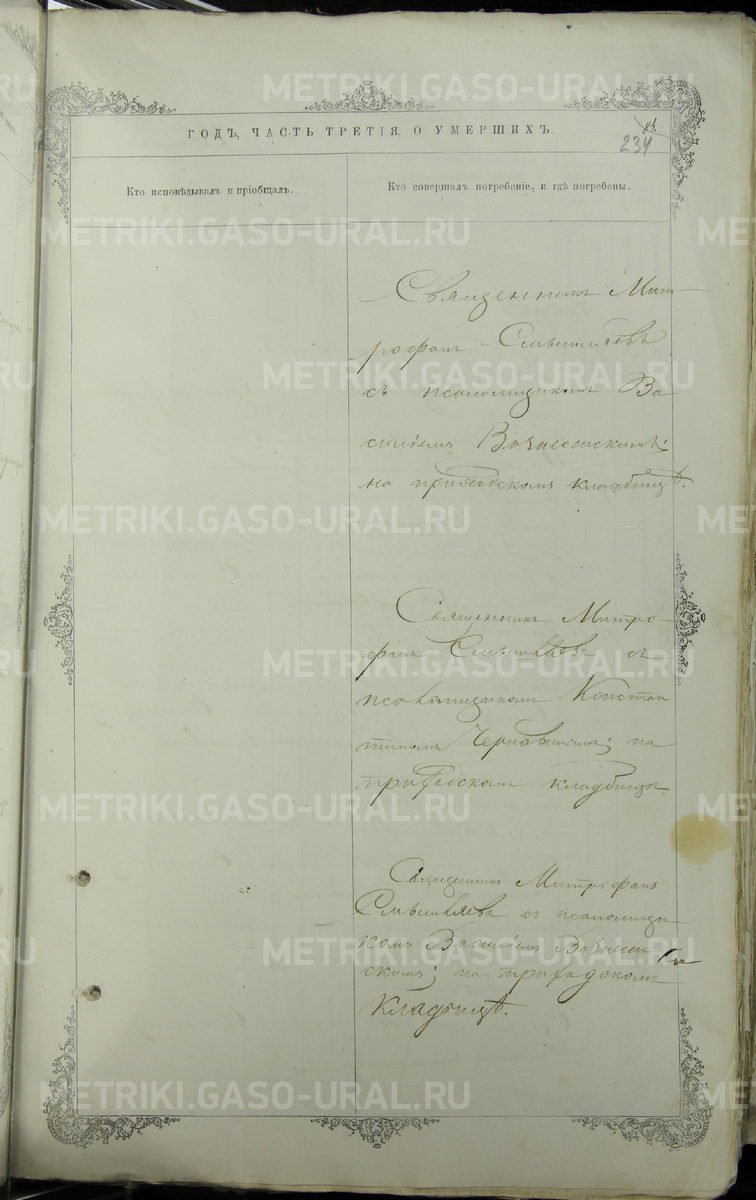 ГОДЪ, ЧАСТЬ ТРЕТІЯ, О УМЕРШИХЪ.
234
Кто исповѣдывалъ и пріобщалъ.
Кто совершалъ погребеніе, и гдѣ погребены.
Священникъ Мит-
рофанъ
съ псаломщикомъ Ва
силіемъ Вознесенскимъ;
на приходскомъ кладбищѣ.
Священникъ Митро-
фанъ съ
псаломщикомъ Констан
тиномъ на
приходскомъ кладбищѣ.
Священникъ Митрофанъ
съ псаломщи
комъ Василіемъ Вознесен
скимъ; на приходскомъ
кладбищѣ.
METRIKI.GASO-URAL.RU